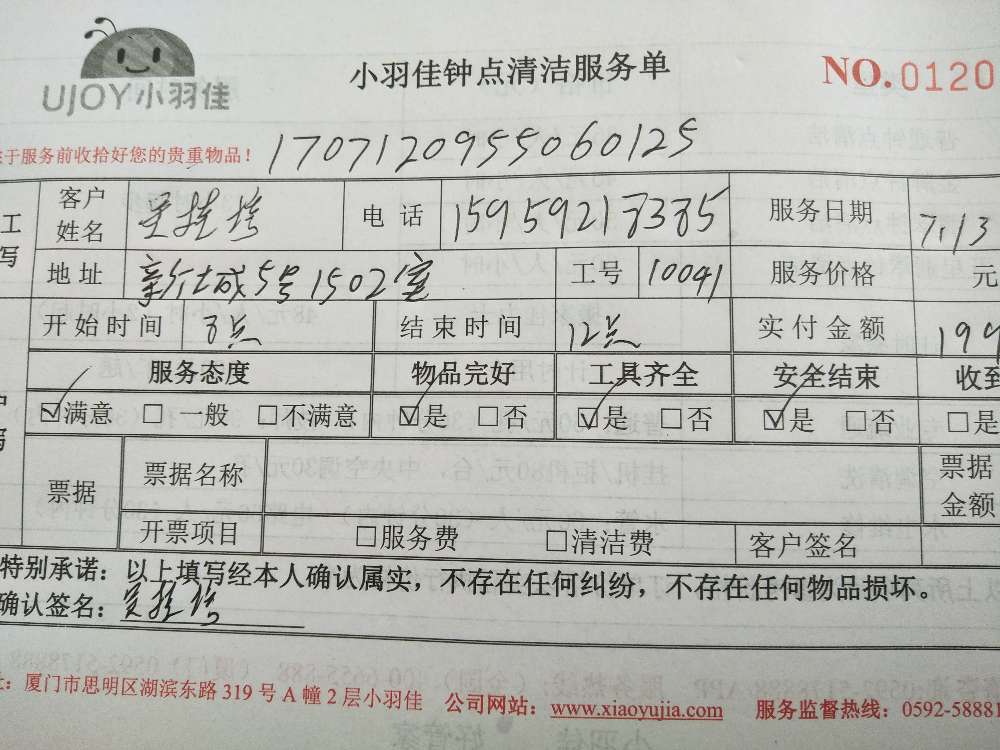 UJOY小羽佳
小羽佳钟点清洁服务单
NO.0120
于服务前收拾好您的贵重物品！
1707120955060125
工
写
客户姓名
电 话 15959218385
服务日期 7.13
地 址 新仕城5号1502室
工号 10091
服务价格 元
开始时间 8点
结束时间 12点
实付金额 199
服务态度 物品完好 工具齐全 安全结束 收到
☑满意 □一般 □不满意 ☑是 □否 ☑是 □否 ☑是 □否 □是
票据
票据名称
票据金额
开票项目 □服务费 □清洁费 客户签名
特别承诺：以上填写经本人确认属实，不存在任何纠纷，不存在任何物品损坏。
确认签名：
：厦门市思明区湖滨东路 319 号 A 幢 2 层小羽佳 公司网站：www.xiaoyujia.com 服务监督热线：0592-58881